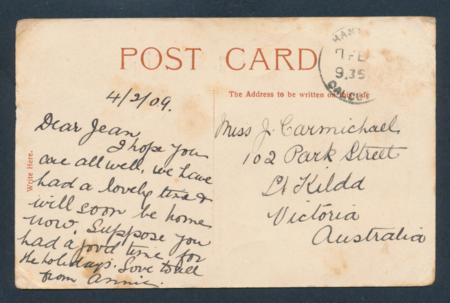 POST CARD
The Address to be written on this side
Write Here.
7 FE
9.35
4/2/09.
Dear Jean
I hope you
are all well, we have
had a lovely time &
will soon be home
now. Suppose you
had a good time for
the holidays. Love to all
from Annie.
Miss J. Carmichael
102 Park Street
St Kilda
Victoria
Australia